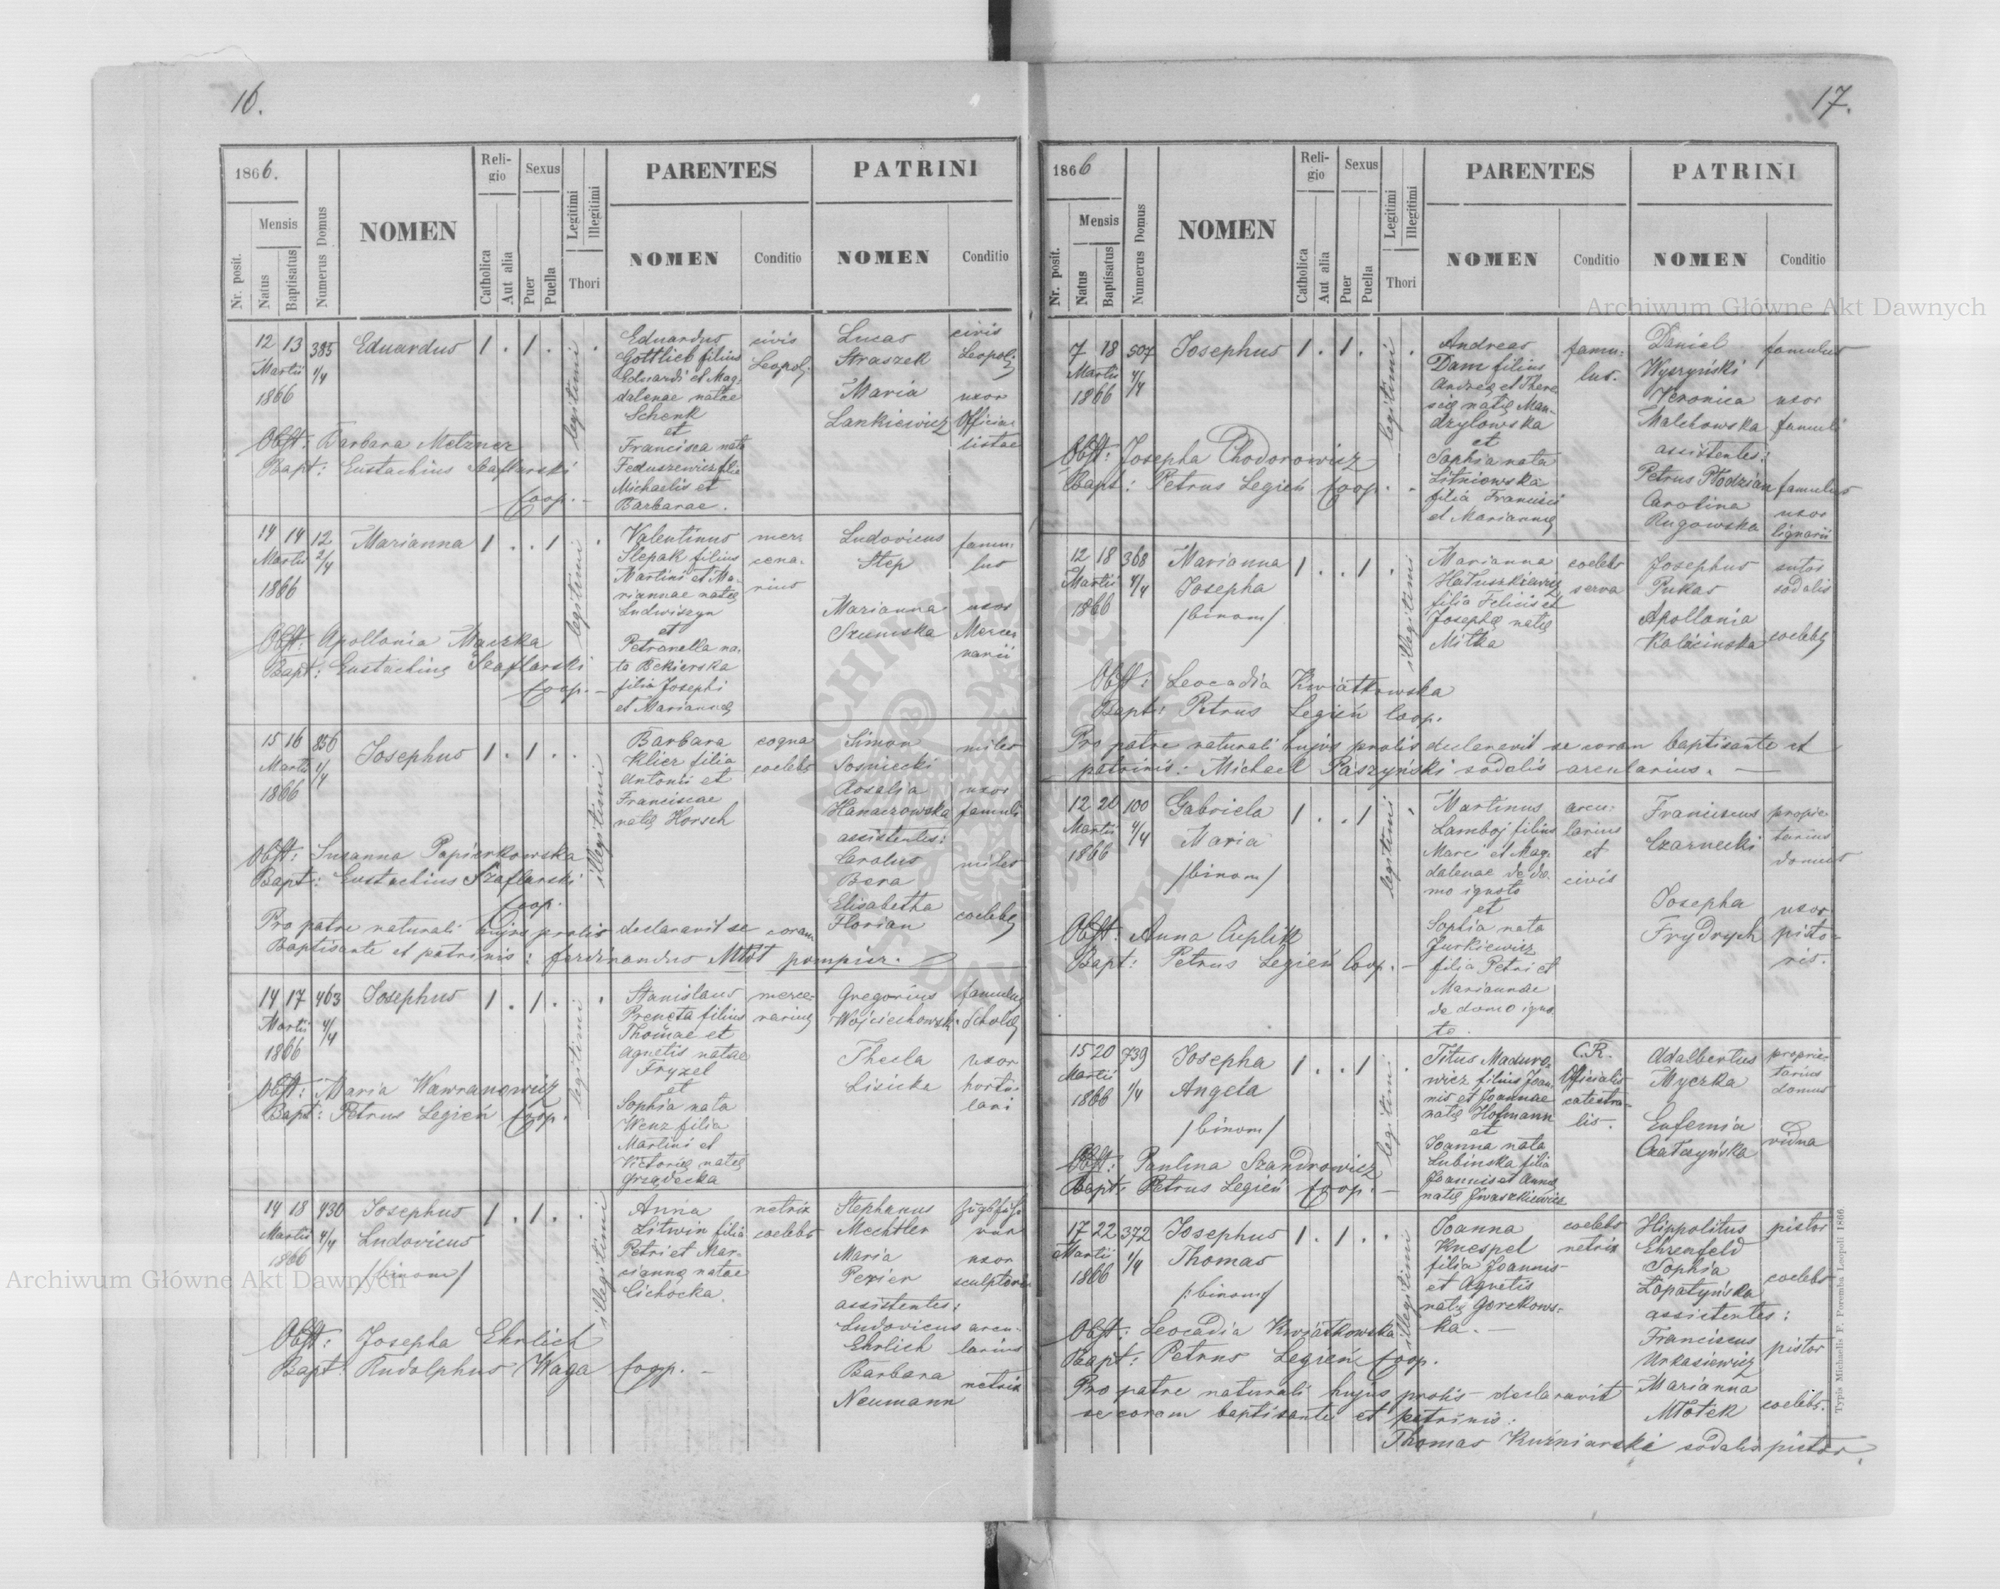 16.
1866.
Nr. posit.
Mensis
Natus
Baptisatus
Numerus Domus
NOMEN
Reli-
gio
Catholica
Aut alia
Sexus
Puer
Puella
Legitimi
Illegitimi
Thori
PARENTES
NOMEN
Conditio
PATRINI
NOMEN
Conditio
12 13 385 Eduardus 1 . 1 . legitimi .
Martii 1/4
1866
Eduardus
Gottlieb filius
Eduardi et Mag-
dalenae natae
Schenk
et
Francisca nata
Feduszewicz filia
Michaelis et
Barbarae.
civis
Leopol:
Lucas
Straszek
Maria
Lankiewicz
civis
Leopol:
uxor
Officia-
listae
Obst: Barbara Metzner
Bapt: Eustachius Szaflarski
Coop. –
14 14 12 Marianna 1 . . 1 legitimi .
Martii 2/4
1866
Valentinus
Slepak filius
Martini et Ma-
riannae natę
Ludwiszyn
et
Petronella na-
ta Bekierska
filia Josephi
et Mariannę
merc
cena-
rius
Ludovicus
Step
Marianna
Szumska
famu-
lus
uxor
Merce-
narii
Obst: Apollonia Maczka
Bapt: Eustachius Szaflarski
Coop. –
15 16 856 Josephus 1 . 1 . . illegitimi
Martii 1/4
1866
Barbara
Klier filia
Antonii et
Franciscae
natę Horsch
cogna
coelebs
Simon
Sosniecki
Rosalia
Hanaczowska
assistentes:
Carolus
Bera
Elisabetha
Florian
miles
uxor
famuli
miles
coelebs
Obst: Susanna Papierkowska
Bapt: Eustachius Szaflarski
Coop.
Pro patre naturali hujus prolis declaravit se coram
Baptisante et patrinis: Ferdinandus Młot pompier.
14 17 463 Josephus 1 . 1 . legitimi .
Martii 4/4
1866
Stanislaus
Preneta filius
Thomae et
Agnetis natae
Fryzel
et
Sophia nata
Wenz filia
Martini et
Victorię natę
Grządecka
merce-
narius
Gregorius
Wojciechowski
Thecla
Lisicka
famulus
Scholę
uxor
hortu-
lani
Obst: Maria Wawranowicz
Bapt: Petrus Legień Coop.
14 18 430 Josephus 1 . 1 . . illegitimi
Martii 4/4 Ludovicus
1866 /binom/
Anna
Litwin filia
Petri et Mar-
ciannę natae
Cichocka.
netrix
coelebs
Stephanus
Mechtler
Maria
Pexier
assistentes:
Ludovicus
Ehrlich
Barbara
Neumann
uxor
sculptoris
arcu-
larius
netrix
Obst: Josepha Ehrlich
Bapt: Rudolphus Waga Coop. –
17.
1866
Nr. posit.
Mensis
Natus
Baptisatus
Numerus Domus
NOMEN
Reli-
gio
Catholica
Aut alia
Sexus
Puer
Puella
Legitimi
Illegitimi
Thori
PARENTES
NOMEN
Conditio
PATRINI
NOMEN
Conditio
7 18 507 Josephus 1 . 1 . legitimi .
Martii 4/4
1866
Andreas
Dam filius
Andreę et There-
się natę Man-
dzylowska
et
Sophia nata
Litniowska
filia Francisci
et Mariannę
famu-
lus.
Daniel
Wyszyński
Veronica
Malchowska
assistentes:
Petrus Płodzian
Carolina
Rugowska
famulus
uxor
famuli
famulus
uxor
lignarii
Obst: Josepha Chodorowicz
Bapt: Petrus Legień Coop. –
12 18 368 Marianna 1 . . 1 . illegitimi
Martii 4/4 Josepha
1866 /binom/
Marianna
Hałuszkiewicz
filia Felicis et
Josephę natę
Mitka
coelebs
serva
Josephus
Pukas
Apollonia
Kolácinska
sutor
sodalis
coelebs
Obst: Leocadia Kwiatkowska
Bapt: Petrus Legień Coop.
Pro patre naturali hujus prolis declaravit se coram baptisante et
patrinis: Michael Paszyński sodalis arcularius. —
12 20 100 Gabriela 1 . . 1 legitimi .
Martii 4/4 Maria
1866 /binom/
Martinus
Lamboj filius
Marci et Mag-
dalenae de do-
mo ignoto
et
Sophia nata
Jurkiewicz
filia Petri et
Mariannae
de domo igno-
to.
arcu-
larius
et
civis
Franciscus
Czarnecki
Josepha
Frydrych
proprie-
tarius
domus
uxor
pisto-
ris.
Obst: Anna Cieplik
Bapt: Petrus Legień Coop. –
15 20 739 Josepha 1 . . 1 legitimi .
Martii 1/4 Angela
1866 /binom/
Titus Maduro-
wicz filius Joan-
nis et Joannae
natę Hofmann
et
Joanna nata
Lubinska filia
Joannis et Annę
natę Iwaszkiewicz
C.R.
Officialis
catastra-
lis.
Adalbertus
Myczka
Eufemia
Czałczyńska
proprie-
tarius
domus
vidua
Obst: Paulina Szandrowicz
Bapt: Petrus Legień Coop. –
17 22 372 Josephus 1 . 1 . . illegitimi
Martii 1/4 Thomas
1866 /:binom/
Joanna
Knespel
filia Joannis
et Agnetis
natę Gorckows-
ka. –
coelebs
netrix
Hippolitus
Ehrenfeld
Sophia
Łopatyńska
assistentes:
Franciscus
Urbasiewicz
Marianna
Młotek
pistor
coelebs
pistor
coelebs.
Obst: Leocadia Kwiatkowska
Bapt: Petrus Legień Coop.
Pro patre naturali hujus prolis declaravit
se coram baptisante et patrinis:
Thomas Kuźniarski sodalis pistor.
Typis Michaelis F. Poremba Leopoli 1866.
Archiwum Główne Akt Dawnych
Archiwum Główne Akt Dawnych